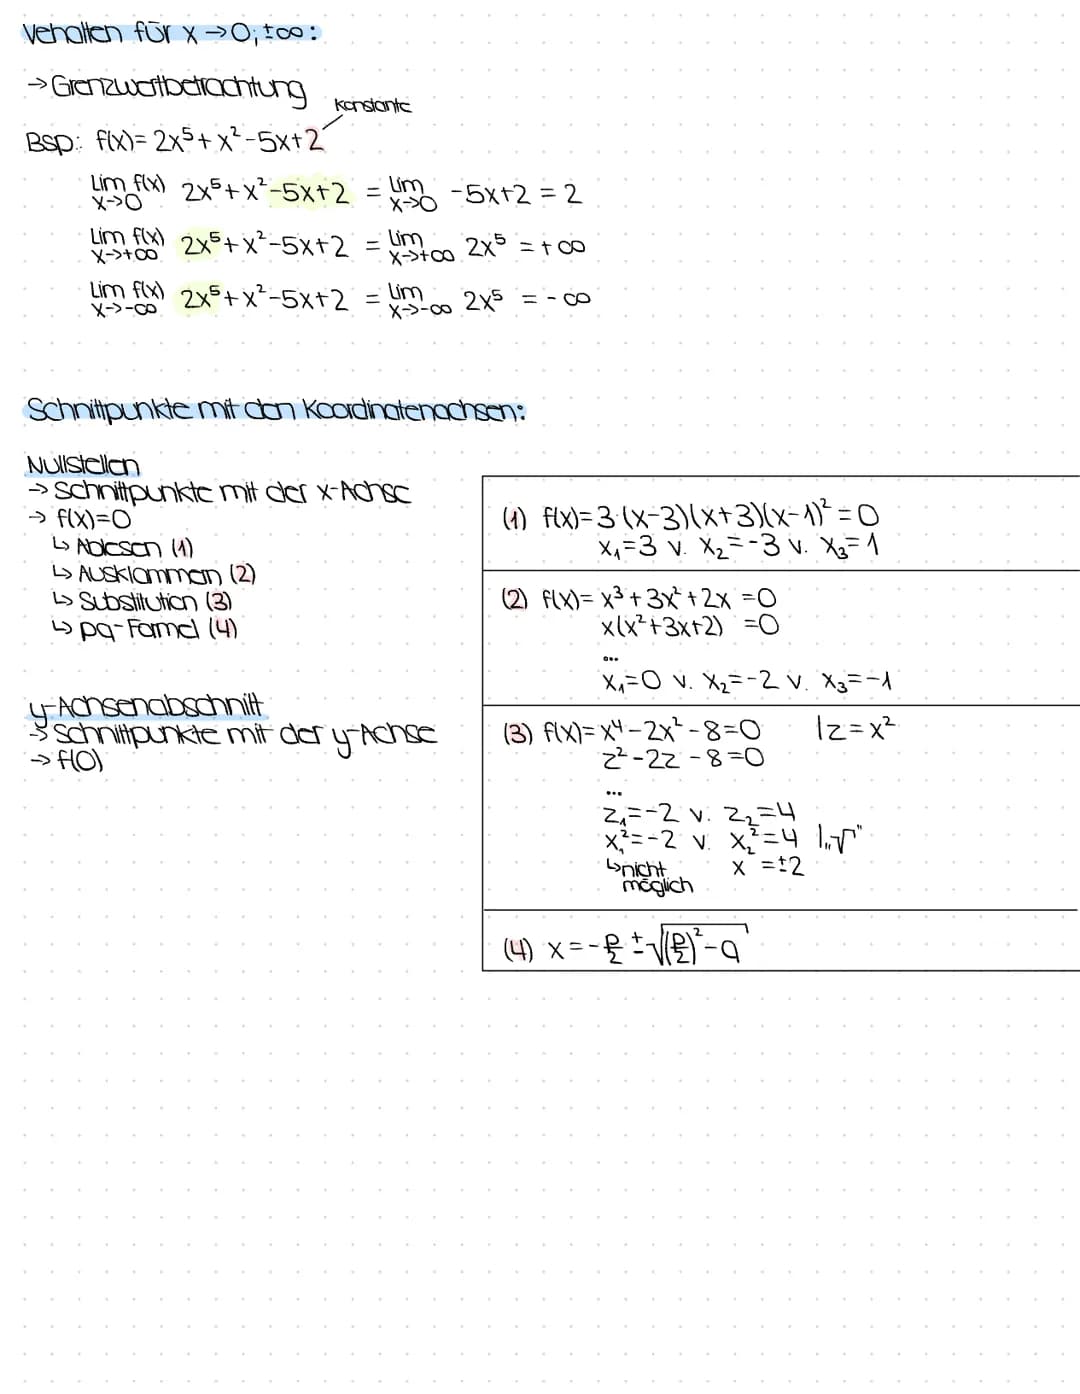 Vehalten für x→0; ±∞:
→Grenzwertbetrachtung
Konstante
Bsp: f(x)= 2x⁵+x²-5x+2
Lim f(x) x→0 2x⁵+x²-5x+2 = Lim x→0 -5x+2 = 2
Lim f(x) x→+∞ 2x⁵+x²-5x+2 = Lim x→+∞ 2x⁵ = +∞
Lim f(x) x→-∞ 2x⁵+x²-5x+2 = Lim x→-∞ 2x⁵ = -∞
Schnittpunkte mit den Koordinatenachsen:
Nullstellen
→ Schnittpunkte mit der x-Achse
→ f(x)=0
↳ Ablesen (1)
↳ Ausklammern (2)
↳ Substitution (3)
↳ pq-Formel (4)
y-Achsenabschnitt
→ Schnittpunkte mit der y-Achse
→ f(0)
(1) f(x)= 3·(x-3)(x+3)(x-1)² = 0
x₁=3 v. x₂=-3 v. x₃=1
(2) f(x)= x³+3x²+2x =0
x(x²+3x+2) =0
...
x₁=0 v. x₂=-2 v. x₃=-1
(3) f(x)= x⁴-2x²-8=0 |z=x²
z²-2z-8=0
...
z₁=-2 v. z₂=4
x₁²=-2 v. x₂²=4 |„√"
↳nicht x =±2
möglich
(4) x=-p/2 ±√((p/2)²-q)